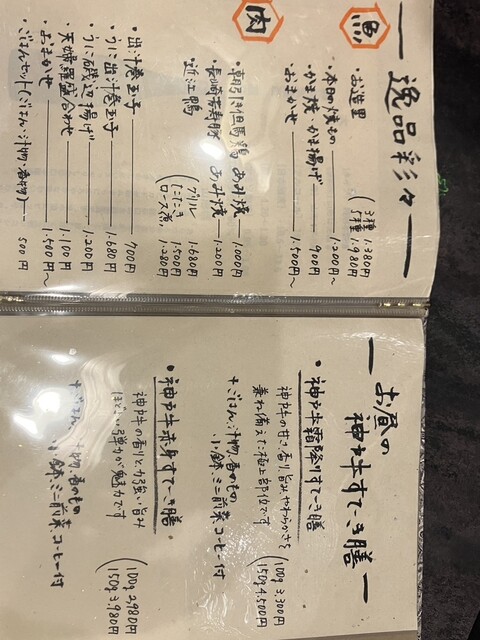 逸品彩々
魚
・お造里 (3種 1.380円
5種 1.980円
・本日の焼もの 1.200円〜
・かま焼・かま揚げ 900円
・おまかせ 1.500円〜
肉
・朝引き但馬鶏 あみ焼 1.000円
・長崎芳寿豚 あみ焼 1.200円
・近江鴨 (グリル 1.680円
たたき 1.500円
ロース煮 1.280円
・出汁巻玉子 700円
・うに出汁巻玉子 1.680円
・うに磯辺揚げ 1.200円
・天婦羅盛合わせ 1.100円
・おまかせ 1.500円〜
・ごはんセット(ごはん・汁物・香物) 500円
お昼の
神戸牛すてーき膳
・神戸牛霜降りすてーき膳
神戸牛の甘さ香り、旨み、やわらかさを
兼ね備えた極上部位です (100g 3.300円
150g 4.500円
+ごはん、汁物、香のもの
小鉢、ミニ前菜、コーヒー付
・神戸牛赤身すてーき膳
神戸牛の香りと力強い旨み
ほどよい弾力が魅力です (100g 2.980円
150g 3.980円
+ごはん、汁物、香のもの
小鉢、ミニ前菜、コーヒー付